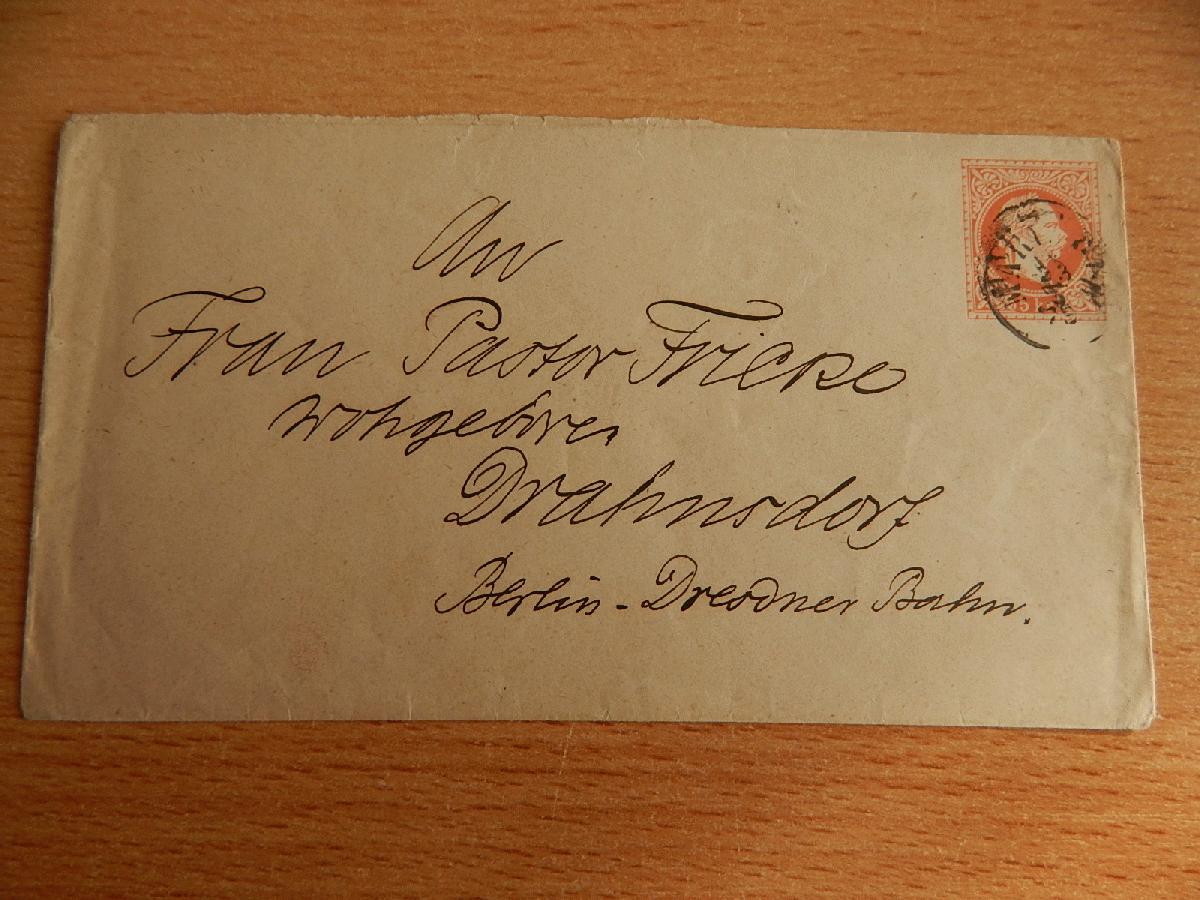 An
Frau Pastor Fricke
wohgeboren
Drahnsdorf
Berlin - Dresdner Bahn.